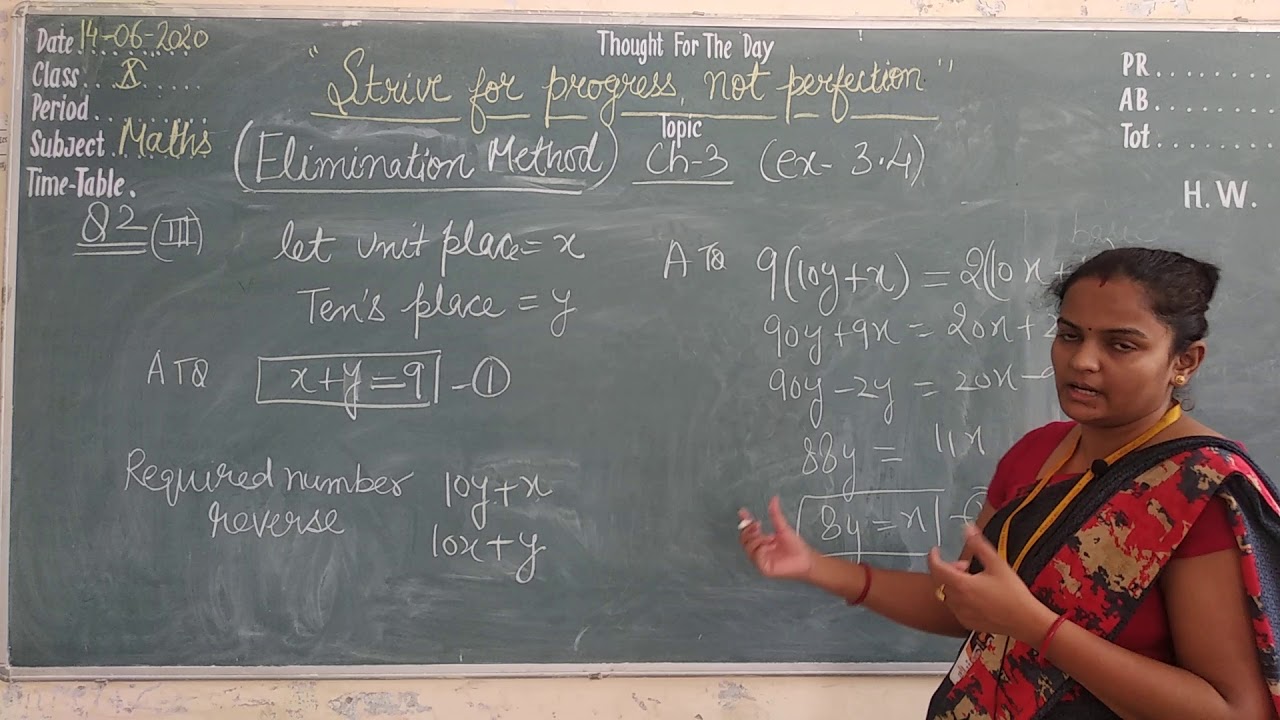 Date 14-06-2020
Class X
Period
Subject Maths
Time-Table.
Thought For The Day
"Strive for progress, not perfection"
Topic
(Elimination Method) Ch-3 (ex- 3.4)
PR
AB
Tot
H.W.
Q2 (III)
let unit place = x
Ten's place = y
ATQ x+y=9 - ①
Required number 10y+x
reverse 10x+y
ATQ 9(10y+x) = 2(10x+
90y+9x = 20x+2
90y-2y = 20x-
88y = 11x
8y = x -